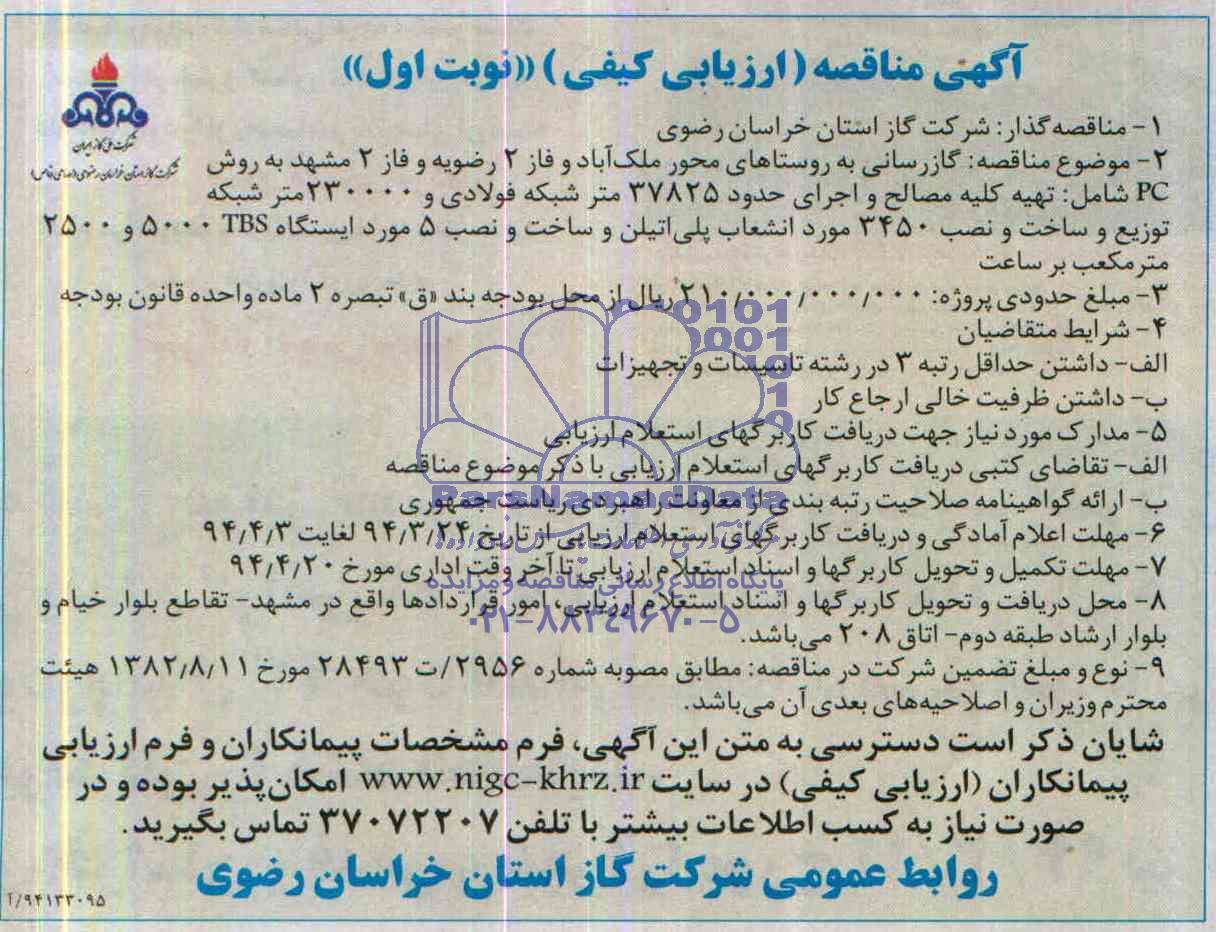 آگهی مناقصه (ارزیابی کیفی) «نوبت اول»
شرکت ملی گاز ایران
شرکت گاز استان خراسان رضوی (سهامی خاص)
۱- مناقصه‌گذار: شرکت گاز استان خراسان رضوی
۲- موضوع مناقصه: گازرسانی به روستاهای محور ملک‌آباد و فاز ۲ رضویه و فاز ۲ مشهد به روش
PC شامل: تهیه کلیه مصالح و اجرای حدود ۳۷۸۲۵ متر شبکه فولادی و ۲۳۰۰۰۰ متر شبکه
توزیع و ساخت و نصب ۳۴۵۰ مورد انشعاب پلی‌اتیلن و ساخت و نصب ۵ مورد ایستگاه TBS ۵۰۰۰ و ۲۵۰۰
مترمکعب بر ساعت
۳- مبلغ حدودی پروژه: ۲۱۰/۰۰۰/۰۰۰/۰۰۰ ریال از محل بودجه بند «ق» تبصره ۲ ماده واحده قانون بودجه
۴- شرایط متقاضیان
الف- داشتن حداقل رتبه ۳ در رشته تاسیسات و تجهیزات
ب- داشتن ظرفیت خالی ارجاع کار
۵- مدارک مورد نیاز جهت دریافت کاربرگهای استعلام ارزیابی
الف- تقاضای کتبی دریافت کاربرگهای استعلام ارزیابی با ذکر موضوع مناقصه
ب- ارائه گواهینامه صلاحیت رتبه بندی از معاونت راهبردی ریاست جمهوری
۶- مهلت اعلام آمادگی و دریافت کاربرگهای استعلام ارزیابی از تاریخ ۹۴/۳/۲۴ لغایت ۹۴/۴/۳
۷- مهلت تکمیل و تحویل کاربرگها و اسناد استعلام ارزیابی تا آخر وقت اداری مورخ ۹۴/۴/۲۰
۸- محل دریافت و تحویل کاربرگها و اسناد استعلام ارزیابی، امور قراردادها واقع در مشهد- تقاطع بلوار خیام و
بلوار ارشاد طبقه دوم- اتاق ۲۰۸ می‌باشد.
۹- نوع و مبلغ تضمین شرکت در مناقصه: مطابق مصوبه شماره ۲۹۵۶/ت ۲۸۴۹۳ مورخ ۱۳۸۲/۸/۱۱ هیئت
محترم وزیران و اصلاحیه‌های بعدی آن می‌باشد.
شایان ذکر است دسترسی به متن این آگهی، فرم مشخصات پیمانکاران و فرم ارزیابی
پیمانکاران (ارزیابی کیفی) در سایت www.nigc-khrz.ir امکان‌پذیر بوده و در
صورت نیاز به کسب اطلاعات بیشتر با تلفن ۳۷۰۷۲۲۰۷ تماس بگیرید.
روابط عمومی شرکت گاز استان خراسان رضوی
۹۴۱۳۳۰۹۵/آ
ParsNamadData
پایگاه اطلاع رسانی مناقصه و مزایده
۰۲۱-۸۸۳۴۹۶۷۰-۵